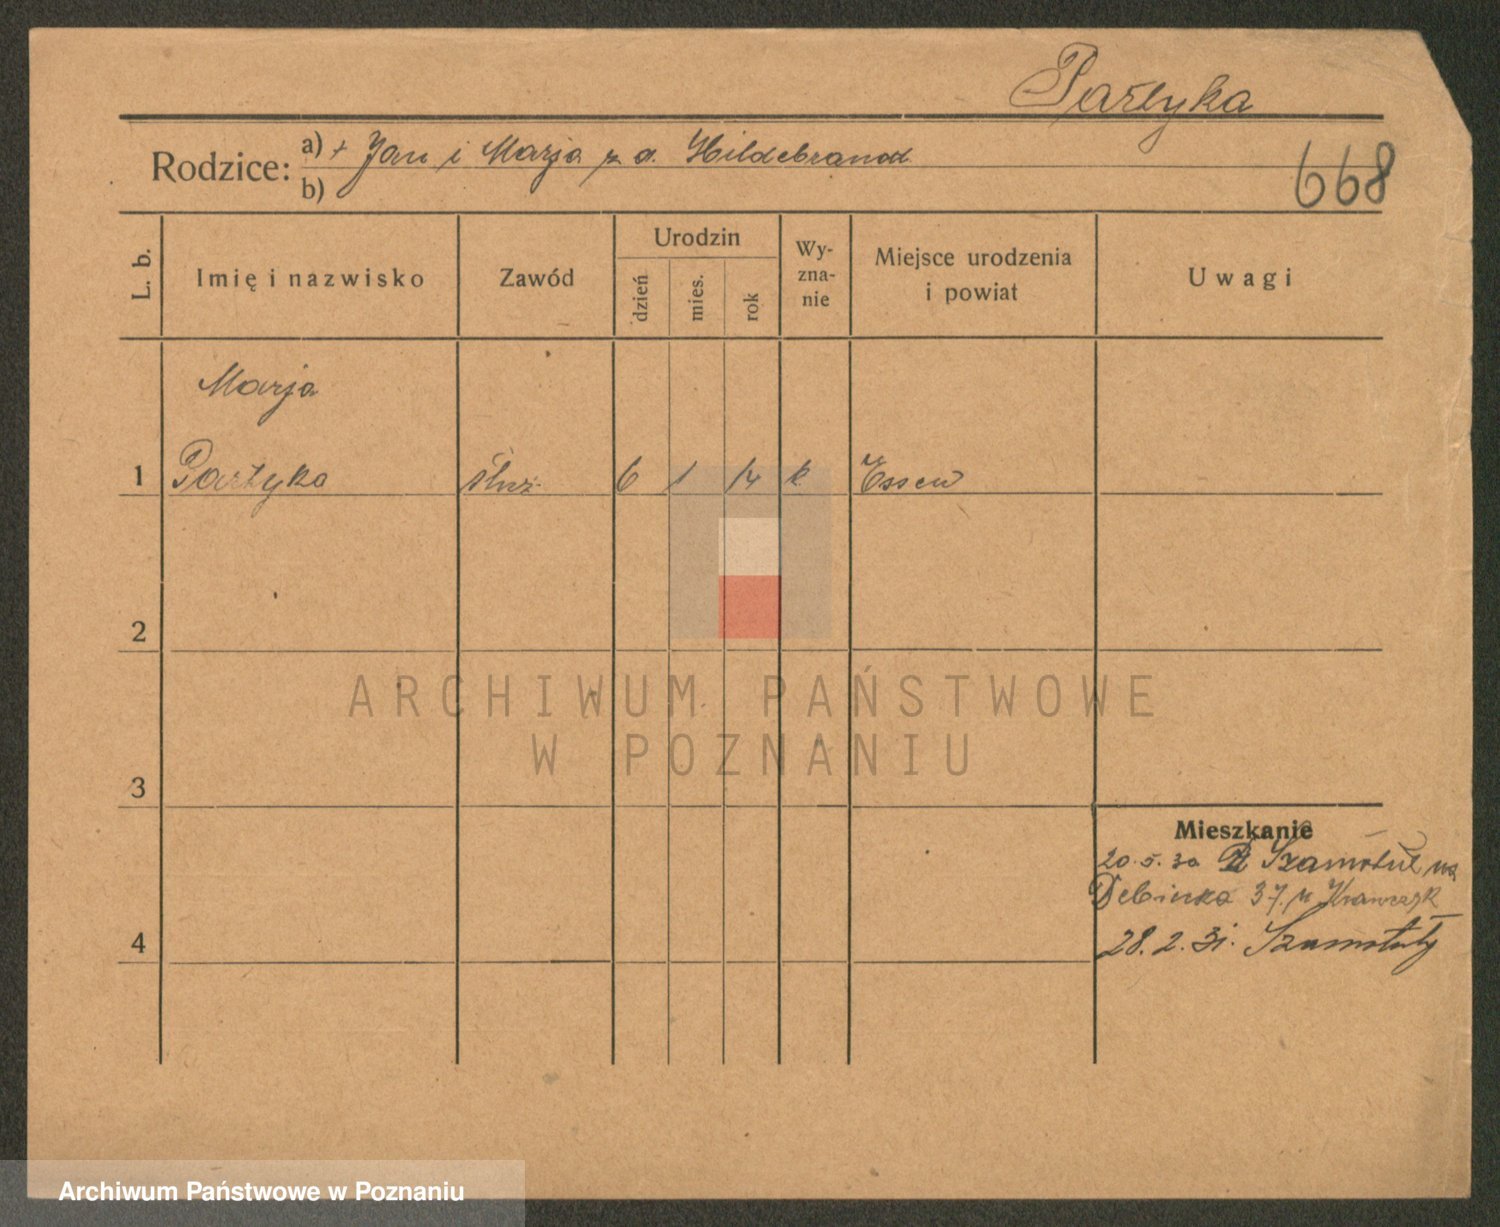 Partyka
Rodzice: a) + Jan i Marja z d. Hildebrand
b)
668
L. b.
Imię i nazwisko
Zawód
Urodzin
dzień
mies.
rok
Wy-
zna-
nie
Miejsce urodzenia
i powiat
Uwagi
Marja
1 Partyka służ. 6 1 14 k. Essen
2
ARCHIWUM PAŃSTWOWE
W POZNANIU
3
Mieszkanie
20.5.30 Z Szamotuł na
Dębinka 37. Krawczyk
4
28.2.31. Szamotuły
Archiwum Państwowe w Poznaniu